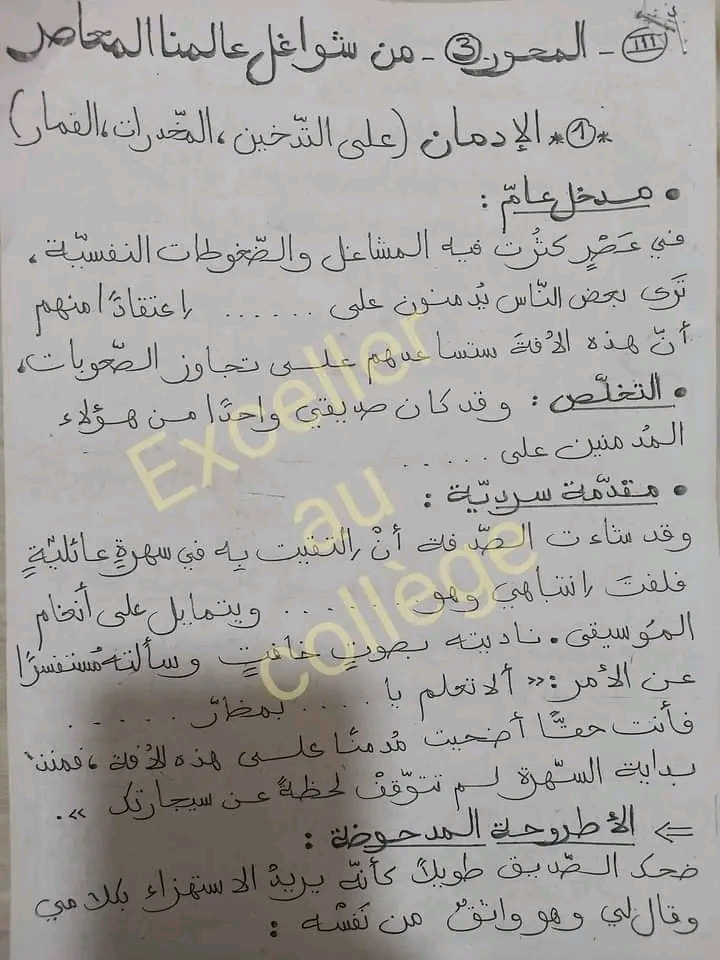 III - المحور 3 - من شواغل عالمنا المعاصر
*1* الإدمان (على التدخين، المخدرات، القمار)
• مدخل عامّ :
في عَصْرٍ كثُرت فيه المشاغل والضّغوطات النفسيّة،
تَرى بعض النّاس يُدمنون على ...... اعتقادًا منهم
أنّ هذه الآفة ستساعدهم على تجاوز الصّعوبات،
• التخلّص : وقد كان صديقي واحدًا من هؤلاء
المُدمنين على .....
• مقدّمة سرديّة :
وقد شاءت الصّدفة أنْ التقيت به في سهرةٍ عائليّةٍ
فلفتَ انتباهي وهو ....... ويتمايل على أنغام
المُوسيقى. ناديته بصوتٍ خافتٍ وسألته مُستفسرًا
عن الأمر: « ألا تعلم يا .... بمضارّ ......
فأنت حقًّا أضحيت مُدمنًا على هذه الآفة، فمنذ
بداية السّهرة لم تتوّقفْ لحظةً عن سيجارتك ».
⇐ الأطروحة المدحوضة :
ضحك الصّديق طويلاً كأنّه يريدُ الاستهزاء بكلامي
وقال لي وهو واثقٌ من نَفسْه :
Exceller
au
collège